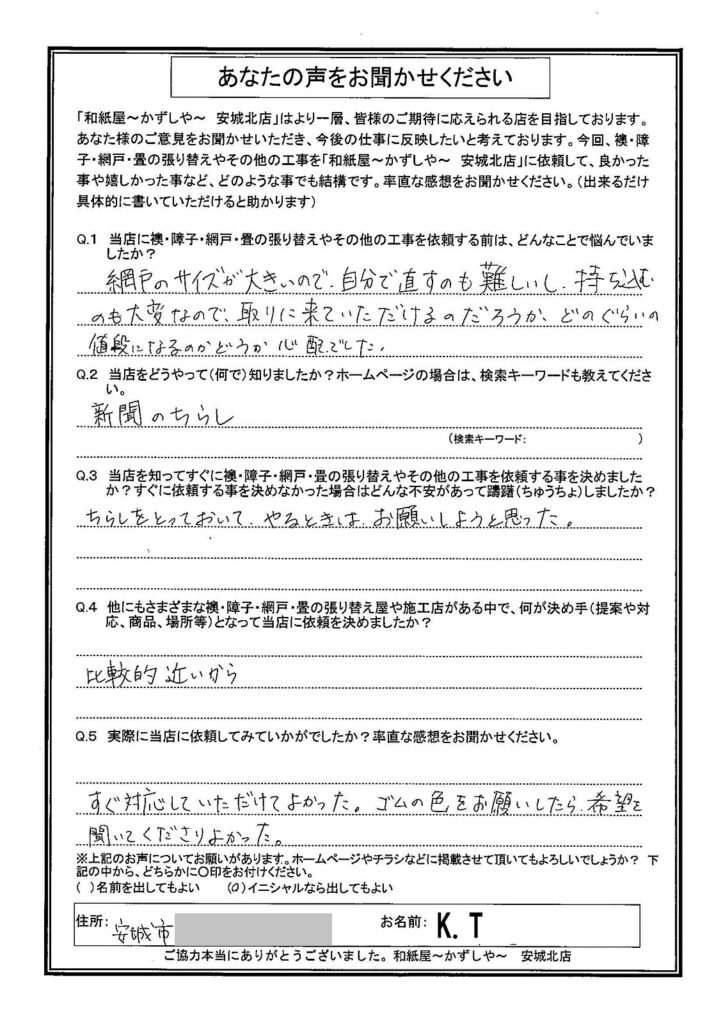 あなたの声をお聞かせください
「和紙屋～かずしや～　安城北店」はより一層、皆様のご期待に応えられる店を目指しております。
あなた様のご意見をお聞かせいただき、今後の仕事に反映したいと考えております。今回、襖・障
子・網戸・畳の張り替えやその他の工事を「和紙屋～かずしや～　安城北店」に依頼して、良かった
事や嬉しかった事など、どのような事でも結構です。率直な感想をお聞かせください。（出来るだけ
具体的に書いていただけると助かります）
Q.1　当店に襖・障子・網戸・畳の張り替えやその他の工事を依頼する前は、どんなことで悩んでいま
したか？
網戸のサイズが大きいので、自分で直すのも難しいし、持ち込む
のも大変なので、取りに来ていただけるのだろうか、どのぐらいの
値段になるのかどうか心配でした。
Q.2　当店をどうやって（何で）知りましたか？ホームページの場合は、検索キーワードも教えてくださ
い。
新聞のちらし
（検索キーワード：　　　　　　　　　　）
Q.3　当店を知ってすぐに襖・障子・網戸・畳の張り替えやその他の工事を依頼する事を決めました
か？すぐに依頼する事を決めなかった場合はどんな不安があって躊躇（ちゅうちょ）しましたか？
ちらしをとっておいて、やるときは、お願いしようと思った。
Q.4　他にもさまざまな襖・障子・網戸・畳の張り替え屋や施工店がある中で、何が決め手（提案や対
応、商品、場所等）となって当店に依頼を決めましたか？
比較的近いから
Q.5　実際に当店に依頼してみていかがでしたか？率直な感想をお聞かせください。
すぐ対応していただけてよかった。ゴムの色をお願いしたら、希望を
聞いてくださりよかった。
※上記のお声についてお願いがあります。ホームページやチラシなどに掲載させて頂いてもよろしいでしょうか？　下
記の中から、どちらかに〇印をお付けください。
（　）名前を出してもよい　　（〇）イニシャルなら出してもよい
住所：安城市　お名前：K.T
ご協力本当にありがとうございました。和紙屋～かずしや～　安城北店